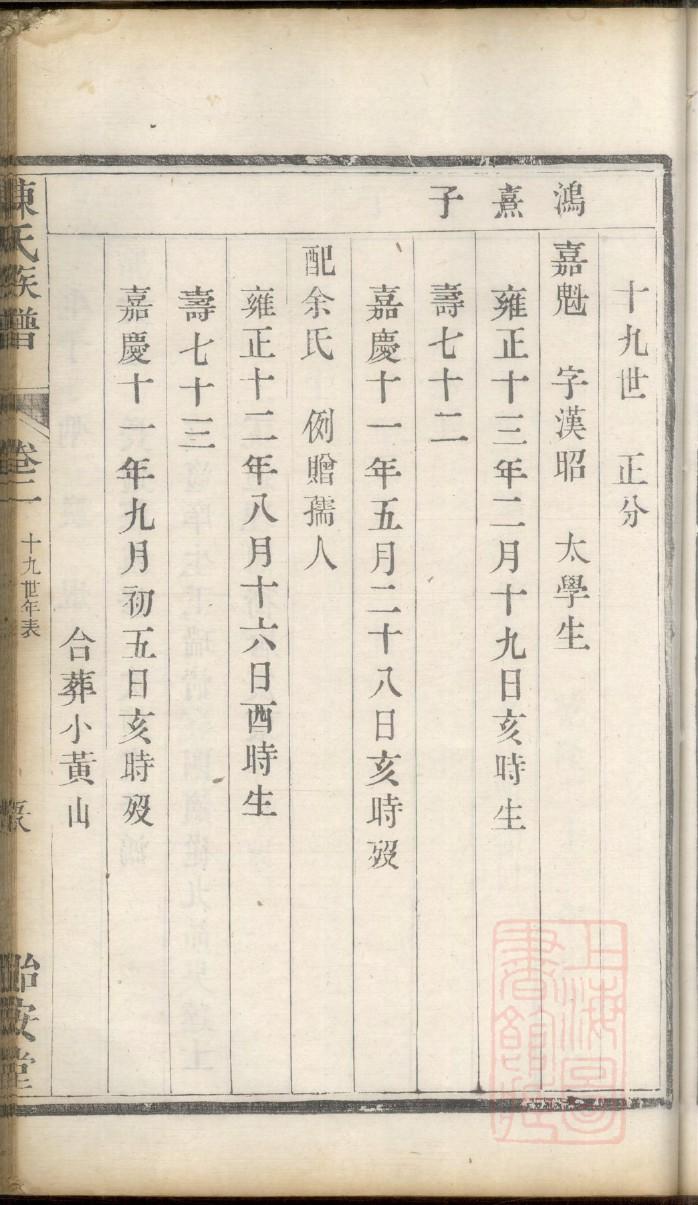 十九世　正分
鴻熹子
嘉魁　字漢昭　太學生
雍正十三年二月十九日亥時生
壽七十二
嘉慶十一年五月二十八日亥時歿
配余氏　例贈孺人
雍正十二年八月十六日酉時生
壽七十三
嘉慶十一年九月初五日亥時歿
合葬小黃山
陳氏族譜　卷二　十九世年表　怡安堂
上海圖書館藏